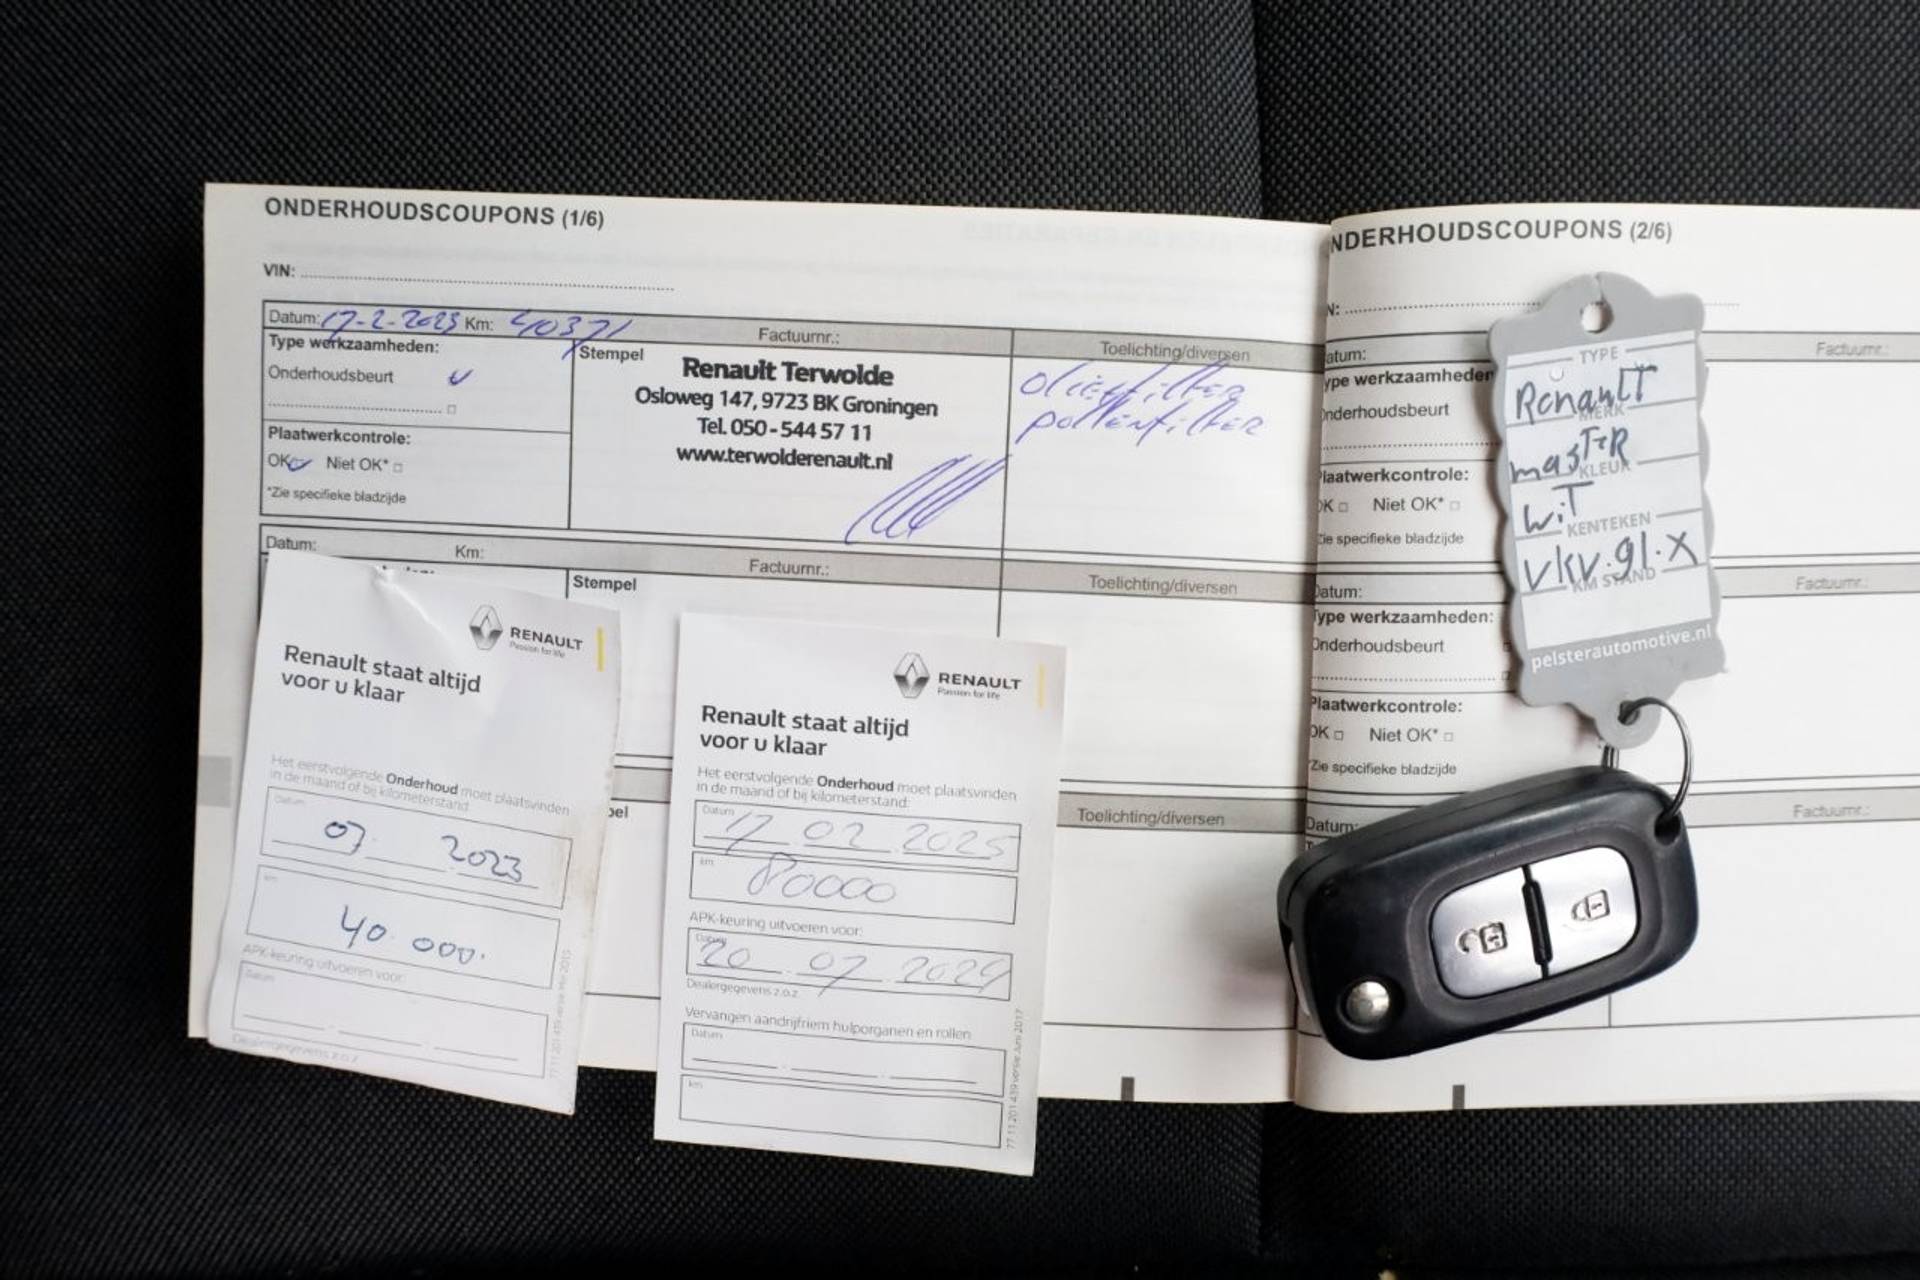 ONDERHOUDSCOUPONS (1/6)
VIN:
Datum: 17-2-2023 Km: 40371 Factuurnr.:
Toelichting/diversen
Type werkzaamheden:
Stempel
Onderhoudsbeurt
Plaatwerkcontrole:
OK Niet OK*
*Zie specifieke bladzijde
Renault Terwolde
Osloweg 147, 9723 BK Groningen
Tel. 050-544 57 11
www.terwolderenault.nl
oliefilter
pollenfilter
Datum: Km: Factuurnr.:
Stempel
Toelichting/diversen
Toelichting/diversen
RENAULT
Passion for life
Renault staat altijd
voor u klaar
Het eerstvolgende Onderhoud moet plaatsvinden
in de maand of bij kilometerstand:
Datum
07 2023
km
40.000.
APK-keuring uitvoeren voor:
Datum
Dealergegevens z.o.z
RENAULT
Passion for life
Renault staat altijd
voor u klaar
Het eerstvolgende Onderhoud moet plaatsvinden
in de maand of bij kilometerstand:
Datum
17 02 2025
km
80000
APK-keuring uitvoeren voor:
Datum
20 07 2024
Dealergegevens z.o.z
Vervangen aandrijfriem hulporganen en rollen
Datum
km
77 11 201 439 versie Juni 2017
NDERHOUDSCOUPONS (2/6)
N:
atum:
Factuurnr.:
ype werkzaamheden
Onderhoudsbeurt
Plaatwerkcontrole:
OK Niet OK*
Zie specifieke bladzijde
Datum:
Factuurnr.:
Type werkzaamheden:
Onderhoudsbeurt
Plaatwerkcontrole:
OK Niet OK*
*Zie specifieke bladzijde
Datum:
Factuurnr.:
TYPE
Renault
MERK
master
KLEUR
wit
KENTEKEN
vkv.91.x
KM STAND
pelsterautomotive.nl